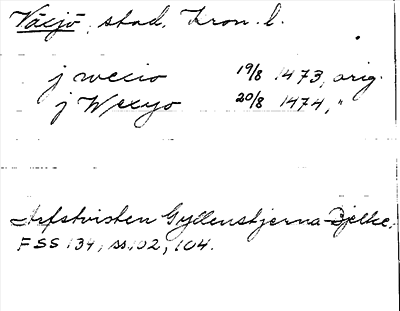 Växjö, stad, Kron. l.
j wexio 19/8 1473, orig.
j Wexyo 20/8 1474, "
Arfstvisten Gyllenstjerna-Bjelke,
FSS 134, ss. 102, 104.